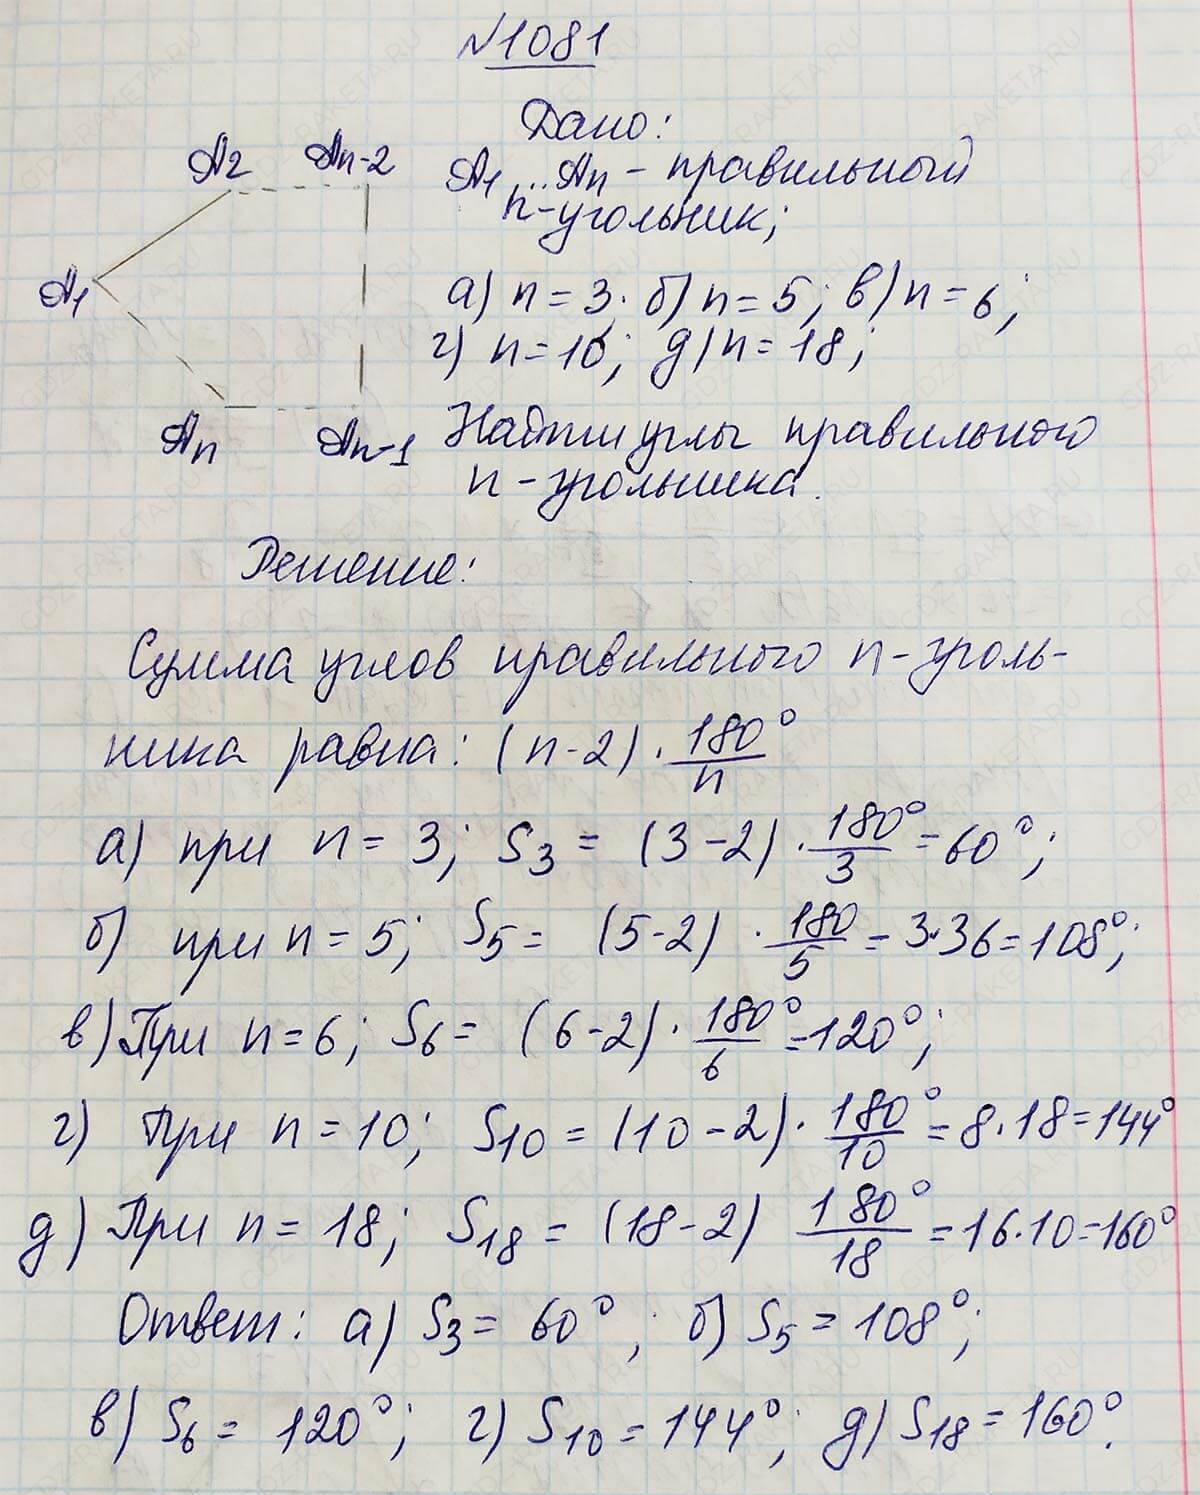 №1081
Дано:
A2 An-2 A1 ... An - правильный
n-угольник;
A1
а) n = 3; б) n = 5; в) n = 6;
г) n = 10; д) n = 18;
An An-1 Найти углы правильного
n - угольника.
Решение:
Сумма углов правильного n - уголь-
ника равна: (n - 2) · 180°/n
а) при n = 3; S3 = (3 - 2) · 180°/3 = 60°;
б) при n = 5; S5 = (5 - 2) · 180/5 = 3·36 = 108°;
в) При n = 6; S6 = (6 - 2) · 180°/6 = 120°;
г) При n = 10; S10 = (10 - 2) · 180°/10 = 8·18 = 144°
д) При n = 18; S18 = (18 - 2) 180°/18 = 16·10 = 160°
Ответ: а) S3 = 60°; б) S5 = 108°;
в) S6 = 120°; г) S10 = 144°; д) S18 = 160°.